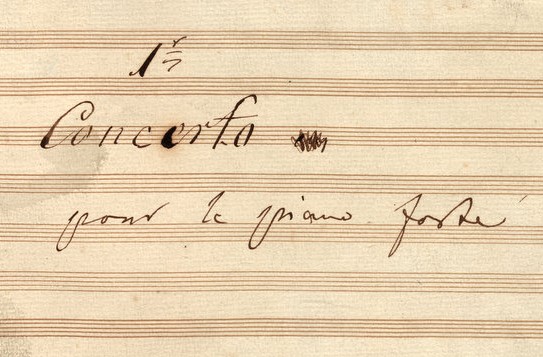 1r
Concerto
pour le piano forte